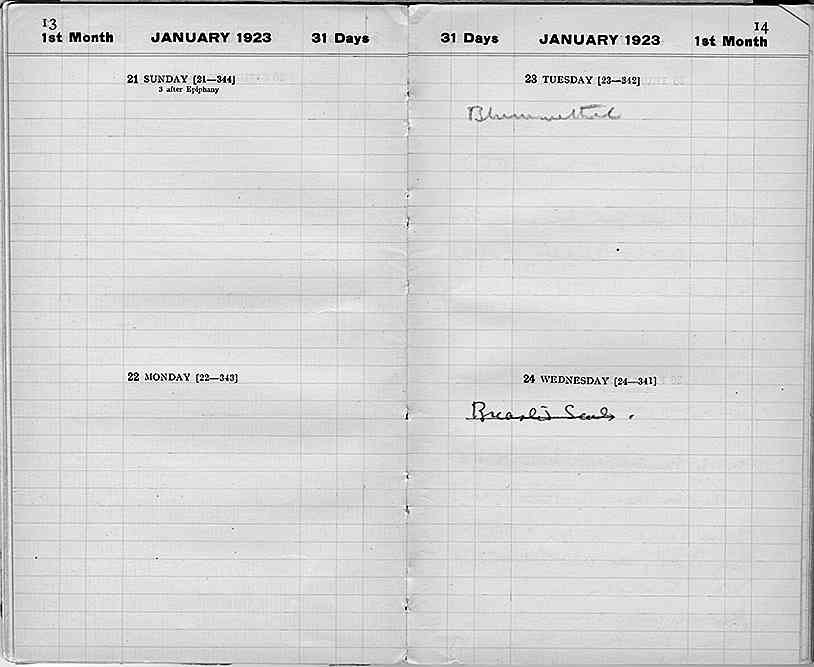 13
1st Month JANUARY 1923 31 Days
21 SUNDAY [21—344]
3 after Epiphany
22 MONDAY [22—343]
14
31 Days JANUARY 1923 1st Month
23 TUESDAY [23—342]
24 WEDNESDAY [24—341]
Seals.